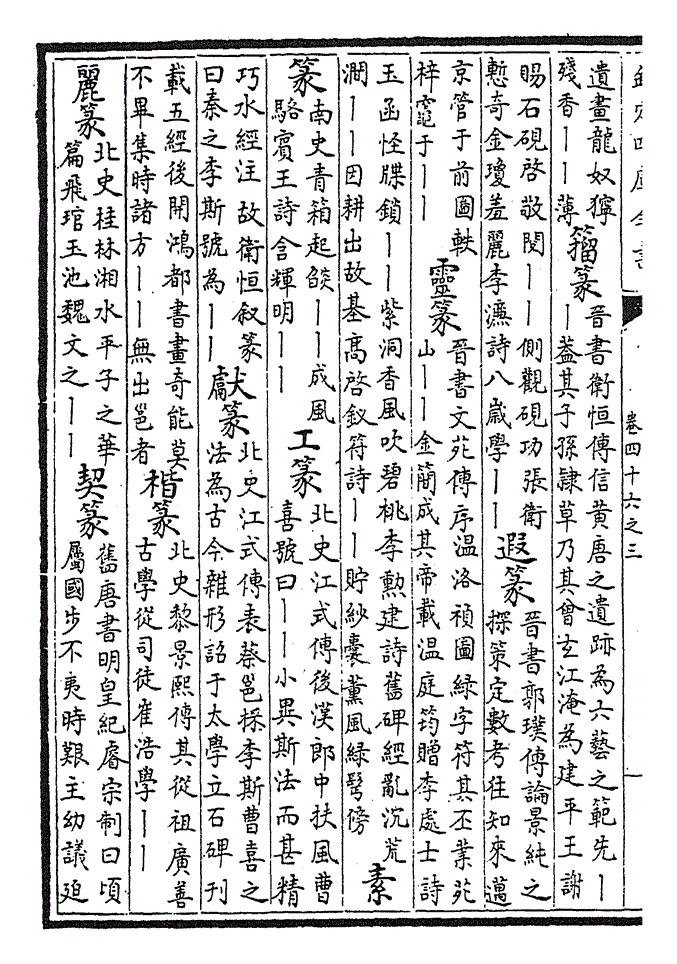 欽定四庫全書
卷四十六之三
遺畫龍奴獰
殘香丨丨薄
籀篆
晉書衛恒傳信黄唐之遺跡為六藝之範先丨
丨葢其子孫隸草乃其曾玄江淹為建平王謝
賜石硯啓敬閱丨丨側觀硯功張衛
慙奇金瓊羞麗李濂詩八歲學丨丨
遐篆
晉書郭璞傳論景純之
探策定數考往知來邁
京管于前圖軼
梓竈于丨丨
靈篆
晉書文苑傳序温洛禎圖緑字符其丕業苑
山丨丨金簡成其帝載温庭筠贈李處士詩
玉函怪牒鎖丨丨紫洞香風吹碧桃李勲建詩舊碑經亂沉荒
澗丨丨因耕出故基髙啓釵符詩丨丨貯紗囊薰風緑髩傍
素
篆
南史青箱起燄丨丨成風
駱賓王詩含輝明丨丨
工篆
北史江式傳後漢郎中扶風曹
喜號曰丨丨小異斯法而甚精
巧水經注故衛恒叙篆
曰秦之李斯號為丨丨
獻篆
北史江式傳表蔡邕採李斯曹喜之
法為古今雜形詔于太學立石碑刊
載五經後開鴻都書畫奇能莫
不畢集時諸方丨丨無出邕者
楷篆
北史黎景熙傳其從祖廣善
古學從司徒崔浩學丨丨
麗篆
北史桂林湘水平子之華
篇飛琯玉池魏文之丨丨
契篆
舊唐書明皇紀睿宗制曰頃
屬國步不夷時艱主幼議廹